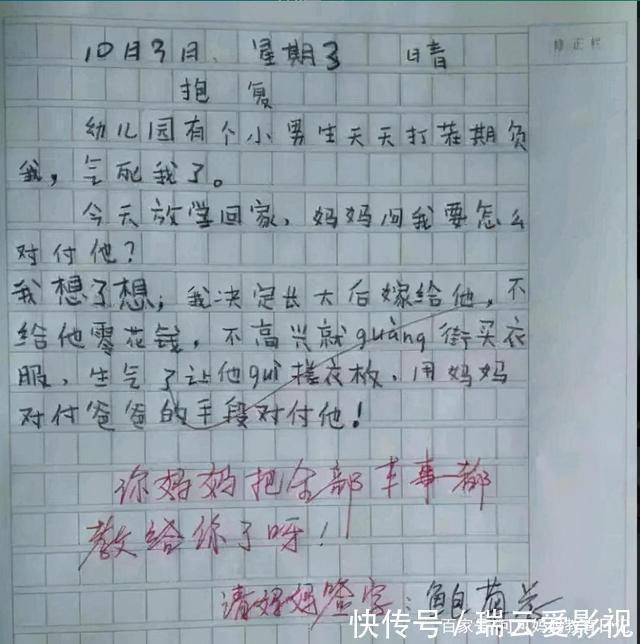 10月3日. 星期3 晴
修正栏
抱 复
幼儿园有个小男生天天打茬期负
我，气死我了。
今天放学回家，妈妈问我要怎么
对付他？
我想了想，我决定长大后嫁给他，不
给他零花钱，不高兴就guàng街买衣
服，生气了让他guì搓衣枚，用妈妈
对付爸爸的手段对付他！
你妈妈把全部本事都
教给你了呀！
请妈妈签字：
快传号/瑞云爱影视